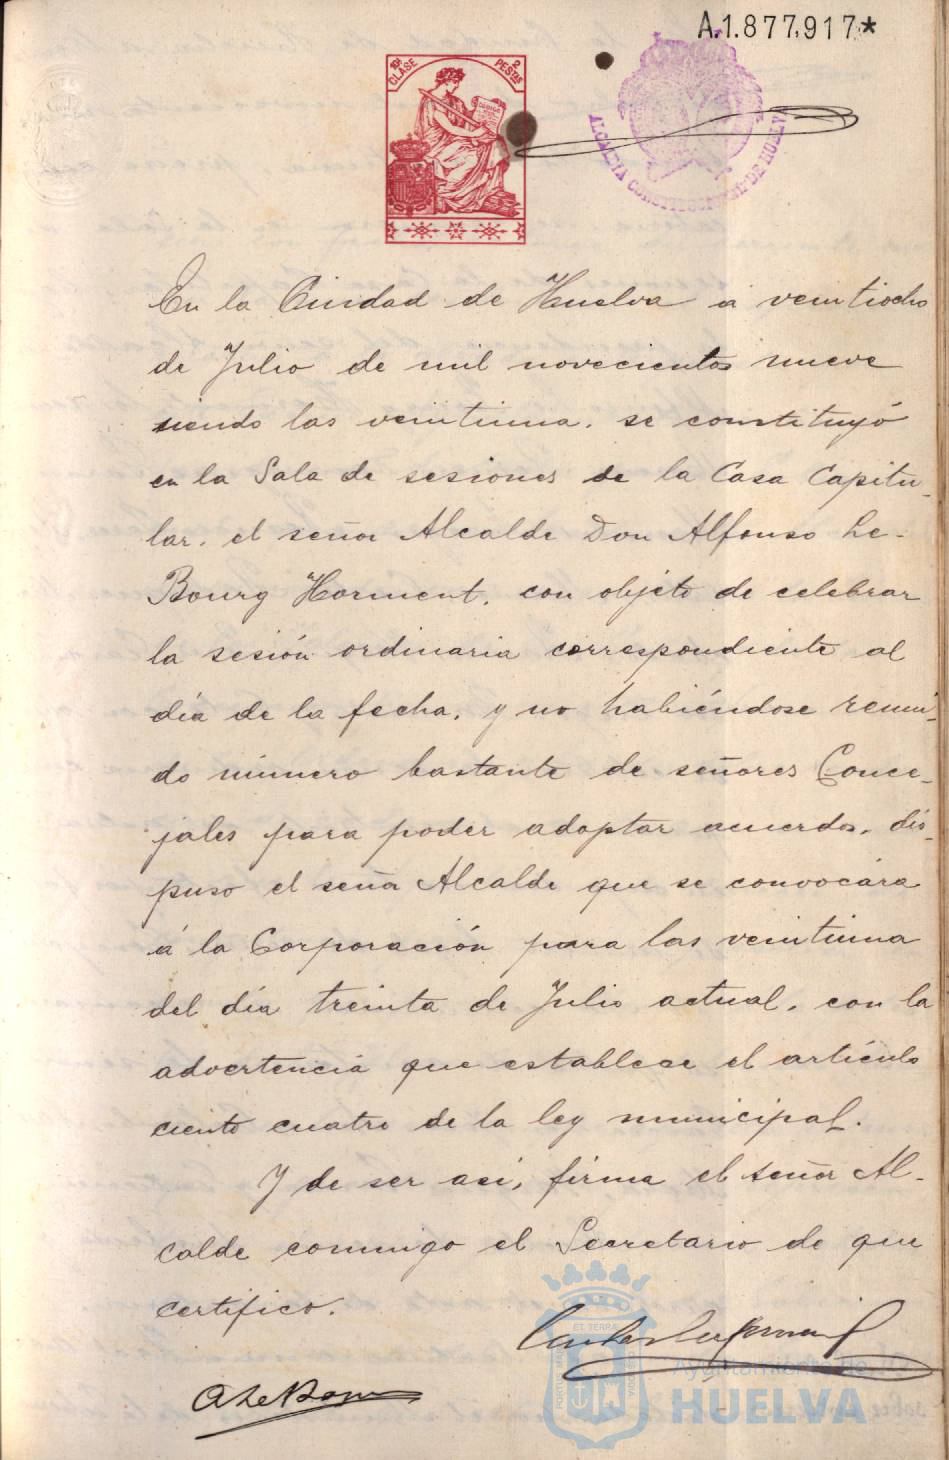 A.1.877,917*
10ª CLASE
2 PESTAS
ALCALDIA CONSTITUCIONAL DE HUELVA
En la Ciudad de Huelva a veintiocho
de Julio de mil novecientos nueve
siendo las veintiuna, se constituyó
en la Sala de sesiones de la Casa Capitu-
lar, el señor Alcalde Don Alfonso Le-
Bourg Horment, con objeto de celebrar
la sesión ordinaria correspondiente al
día de la fecha, y no habiéndose reuni-
do número bastante de señores Conce-
jales para poder adoptar acuerdos, dis-
puso el señor Alcalde que se convocára
á la Corporación para las veintiuna
del día treinta de Julio actual, con la
advertencia que establece el artículo
ciento cuatro de la ley municipal.
Y de ser asi, firma el señor Al-
calde conmigo el Secretario de que
certifico.
A Le Bourg
Ayuntamiento de
HUELVA